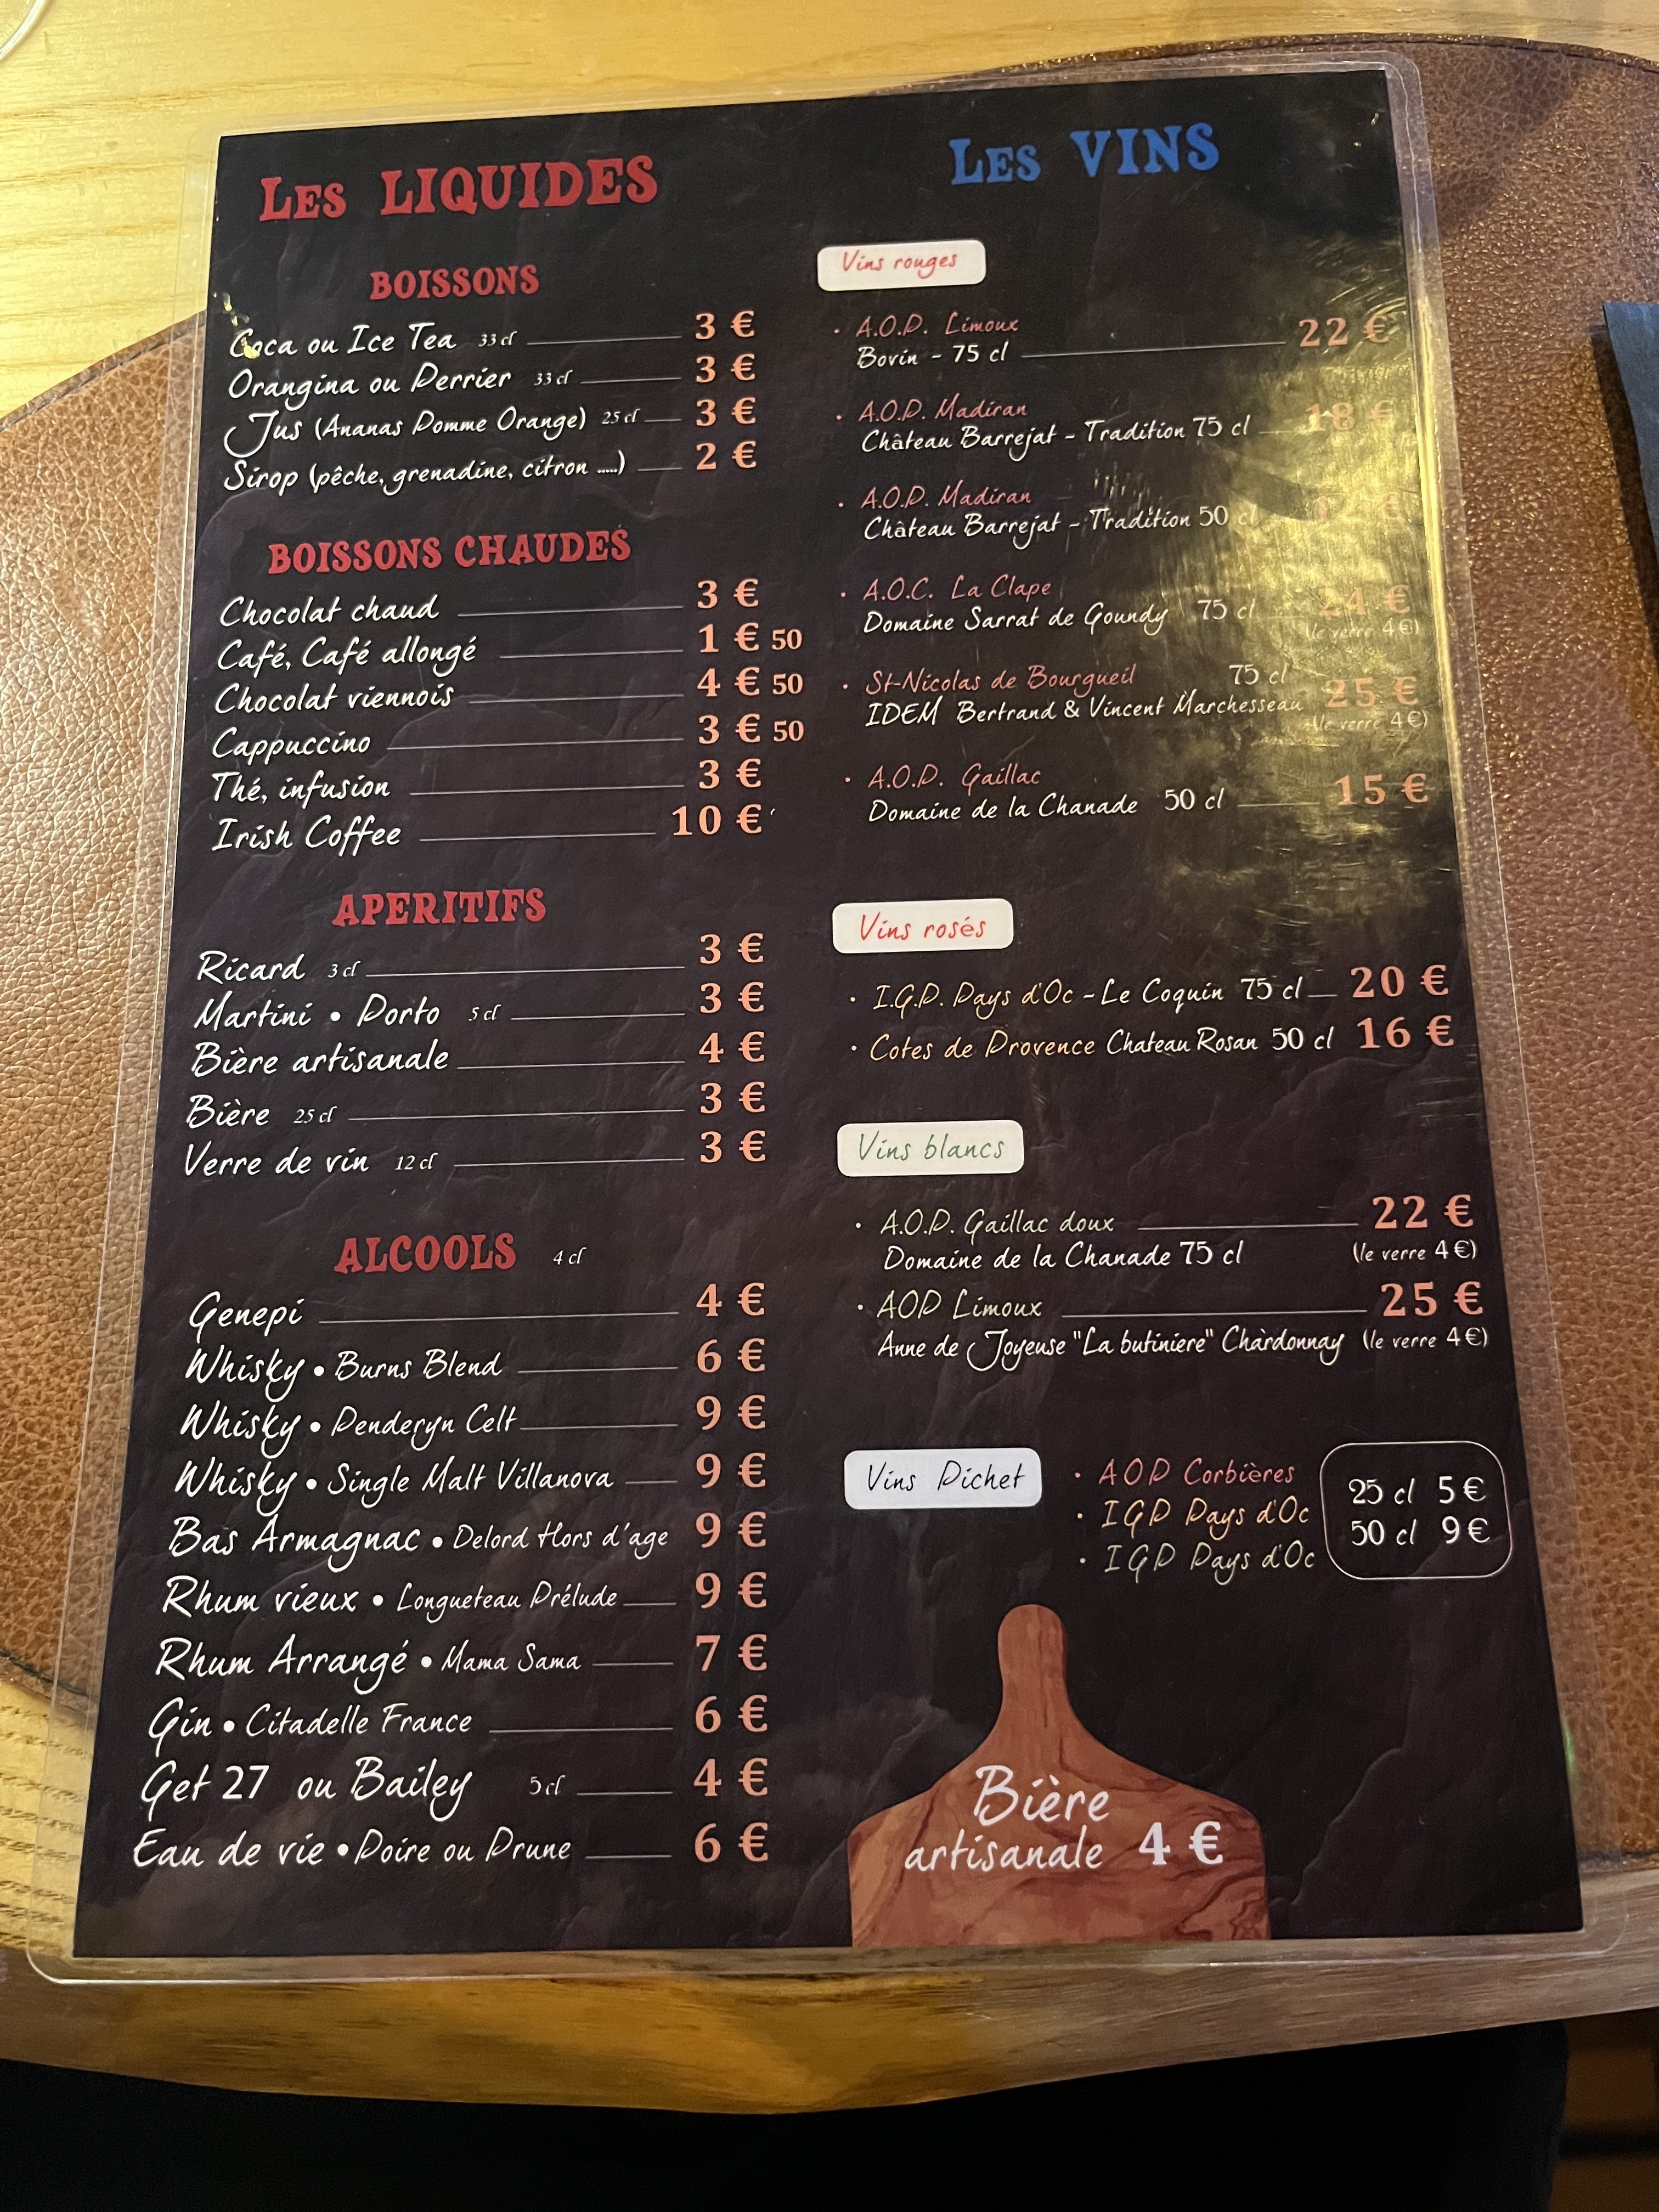 LES LIQUIDES
BOISSONS
Coca ou Ice Tea 33 cl 3 €
Orangina ou Perrier 33 cl 3 €
Jus (Ananas Pomme Orange) 25 cl 3 €
Sirop (pêche, grenadine, citron .....) 2 €
BOISSONS CHAUDES
Chocolat chaud 3 €
Café, Café allongé 1 € 50
Chocolat viennois 4 € 50
Cappuccino 3 € 50
Thé, infusion 3 €
Irish Coffee 10 €
APERITIFS
Ricard 3 cl 3 €
Martini • Porto 5 cl 3 €
Bière artisanale 4 €
Bière 25 cl 3 €
Verre de vin 12 cl 3 €
ALCOOLS 4 cl
Genepi 4 €
Whisky • Burns Blend 6 €
Whisky • Penderyn Celt 9 €
Whisky • Single Malt Villanova 9 €
Bas Armagnac • Delord Hors d'age 9 €
Rhum vieux • Longueteau Prélude 9 €
Rhum Arrangé • Mama Sama 7 €
Gin • Citadelle France 6 €
Get 27 ou Bailey 5 cl 4 €
Eau de vie • Poire ou Prune 6 €
LES VINS
Vins rouges
• A.O.P. Limoux
Bovin - 75 cl 22 €
• A.O.P. Madiran
Château Barrejat - Tradition 75 cl 18 €
• A.O.P. Madiran
Château Barrejat - Tradition 50 cl
• A.O.C. La Clape
Domaine Sarrat de Goundy 75 cl 24 €
(le verre 4 €)
• St-Nicolas de Bourgueil 75 cl
IDEM Bertrand & Vincent Marchesseau 25 €
(le verre 4 €)
• A.O.P. Gaillac
Domaine de la Chanade 50 cl 15 €
Vins rosés
• I.G.P. Pays d'Oc - Le Coquin 75 cl 20 €
• Cotes de Provence Chateau Rosan 50 cl 16 €
Vins blancs
• A.O.P. Gaillac doux 22 €
Domaine de la Chanade 75 cl (le verre 4 €)
• AOP Limoux 25 €
Anne de Joyeuse "La butiniere" Chardonnay (le verre 4 €)
Vins Pichet
• AOP Corbières
• IGP Pays d'Oc
• IGP Pays d'Oc
25 cl 5 €
50 cl 9 €
Bière
artisanale 4 €